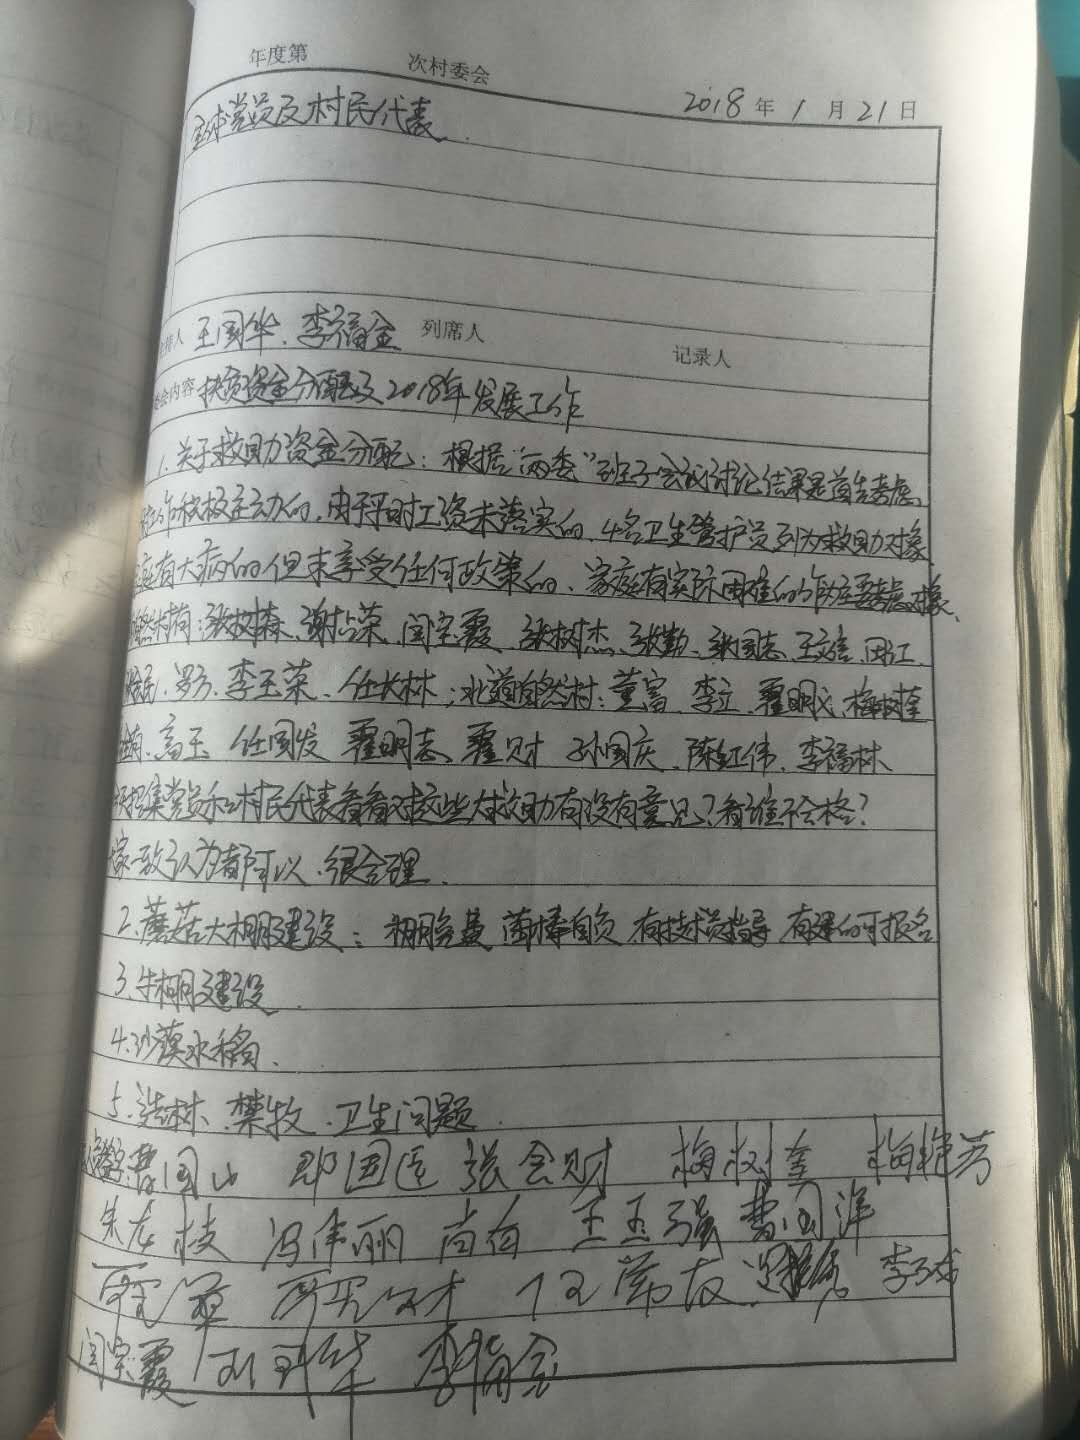 年度第 次村委会 2018年1月21日
全体党员及村民代表
持人 王国华、李福金 列席人 记录人
委会内容 扶贫资金分配及2018年发展工作
1.关于救助资金分配：根据“两委”班子会议讨论结果是首先考虑
工作积极主动的，由于平时工资未落实的，4名卫生管护员列为救助对象
家庭有大病的但未享受任何政策的、家庭有实际困难的作为主要考虑对象、
自然村有：张树森、谢占荣、闫宝霞、张树杰、张勤、张国志、王文信、田江、
民、罗方、李玉荣、任长林；北道自然村：董富、李立、翟明义、梅树奎
高玉 任国发 翟明志、翟财 孙国庆、陈红伟、李福林
天招集党员和村民代表看看对这些人救助有没有意见？看谁不合格？
大家一致认为都可以、很合理.
2.蘑菇大棚建设：棚免费 菌棒自负 有技术员指导 有意的可报名
3.牛棚建设.
4.沙漠水稻.
5.造林、禁牧、卫生问题
曹国山 邵国臣 张会财 梅树奎 梅艳芳
朱龙枝 冯伟丽 尚有 王玉强 曹国洋
闫宝霞 王国华 李福金